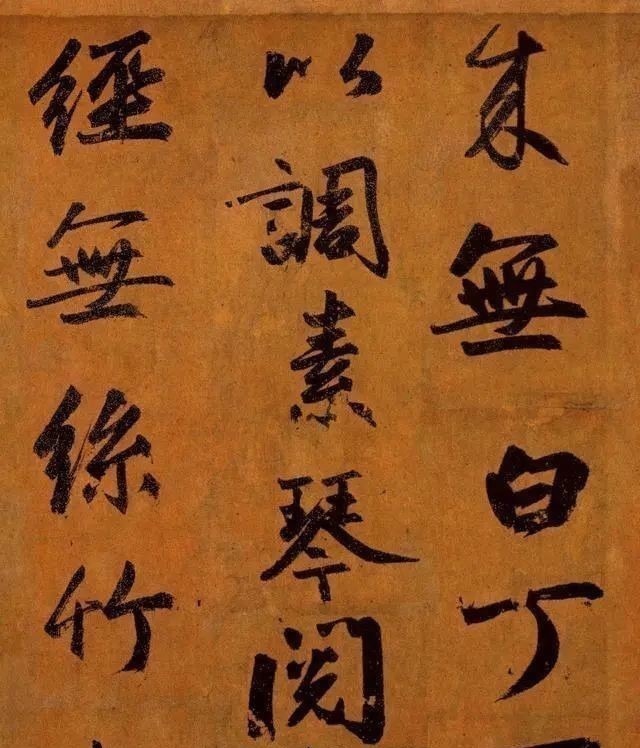 來無白丁
以調素琴閱
經無絲竹